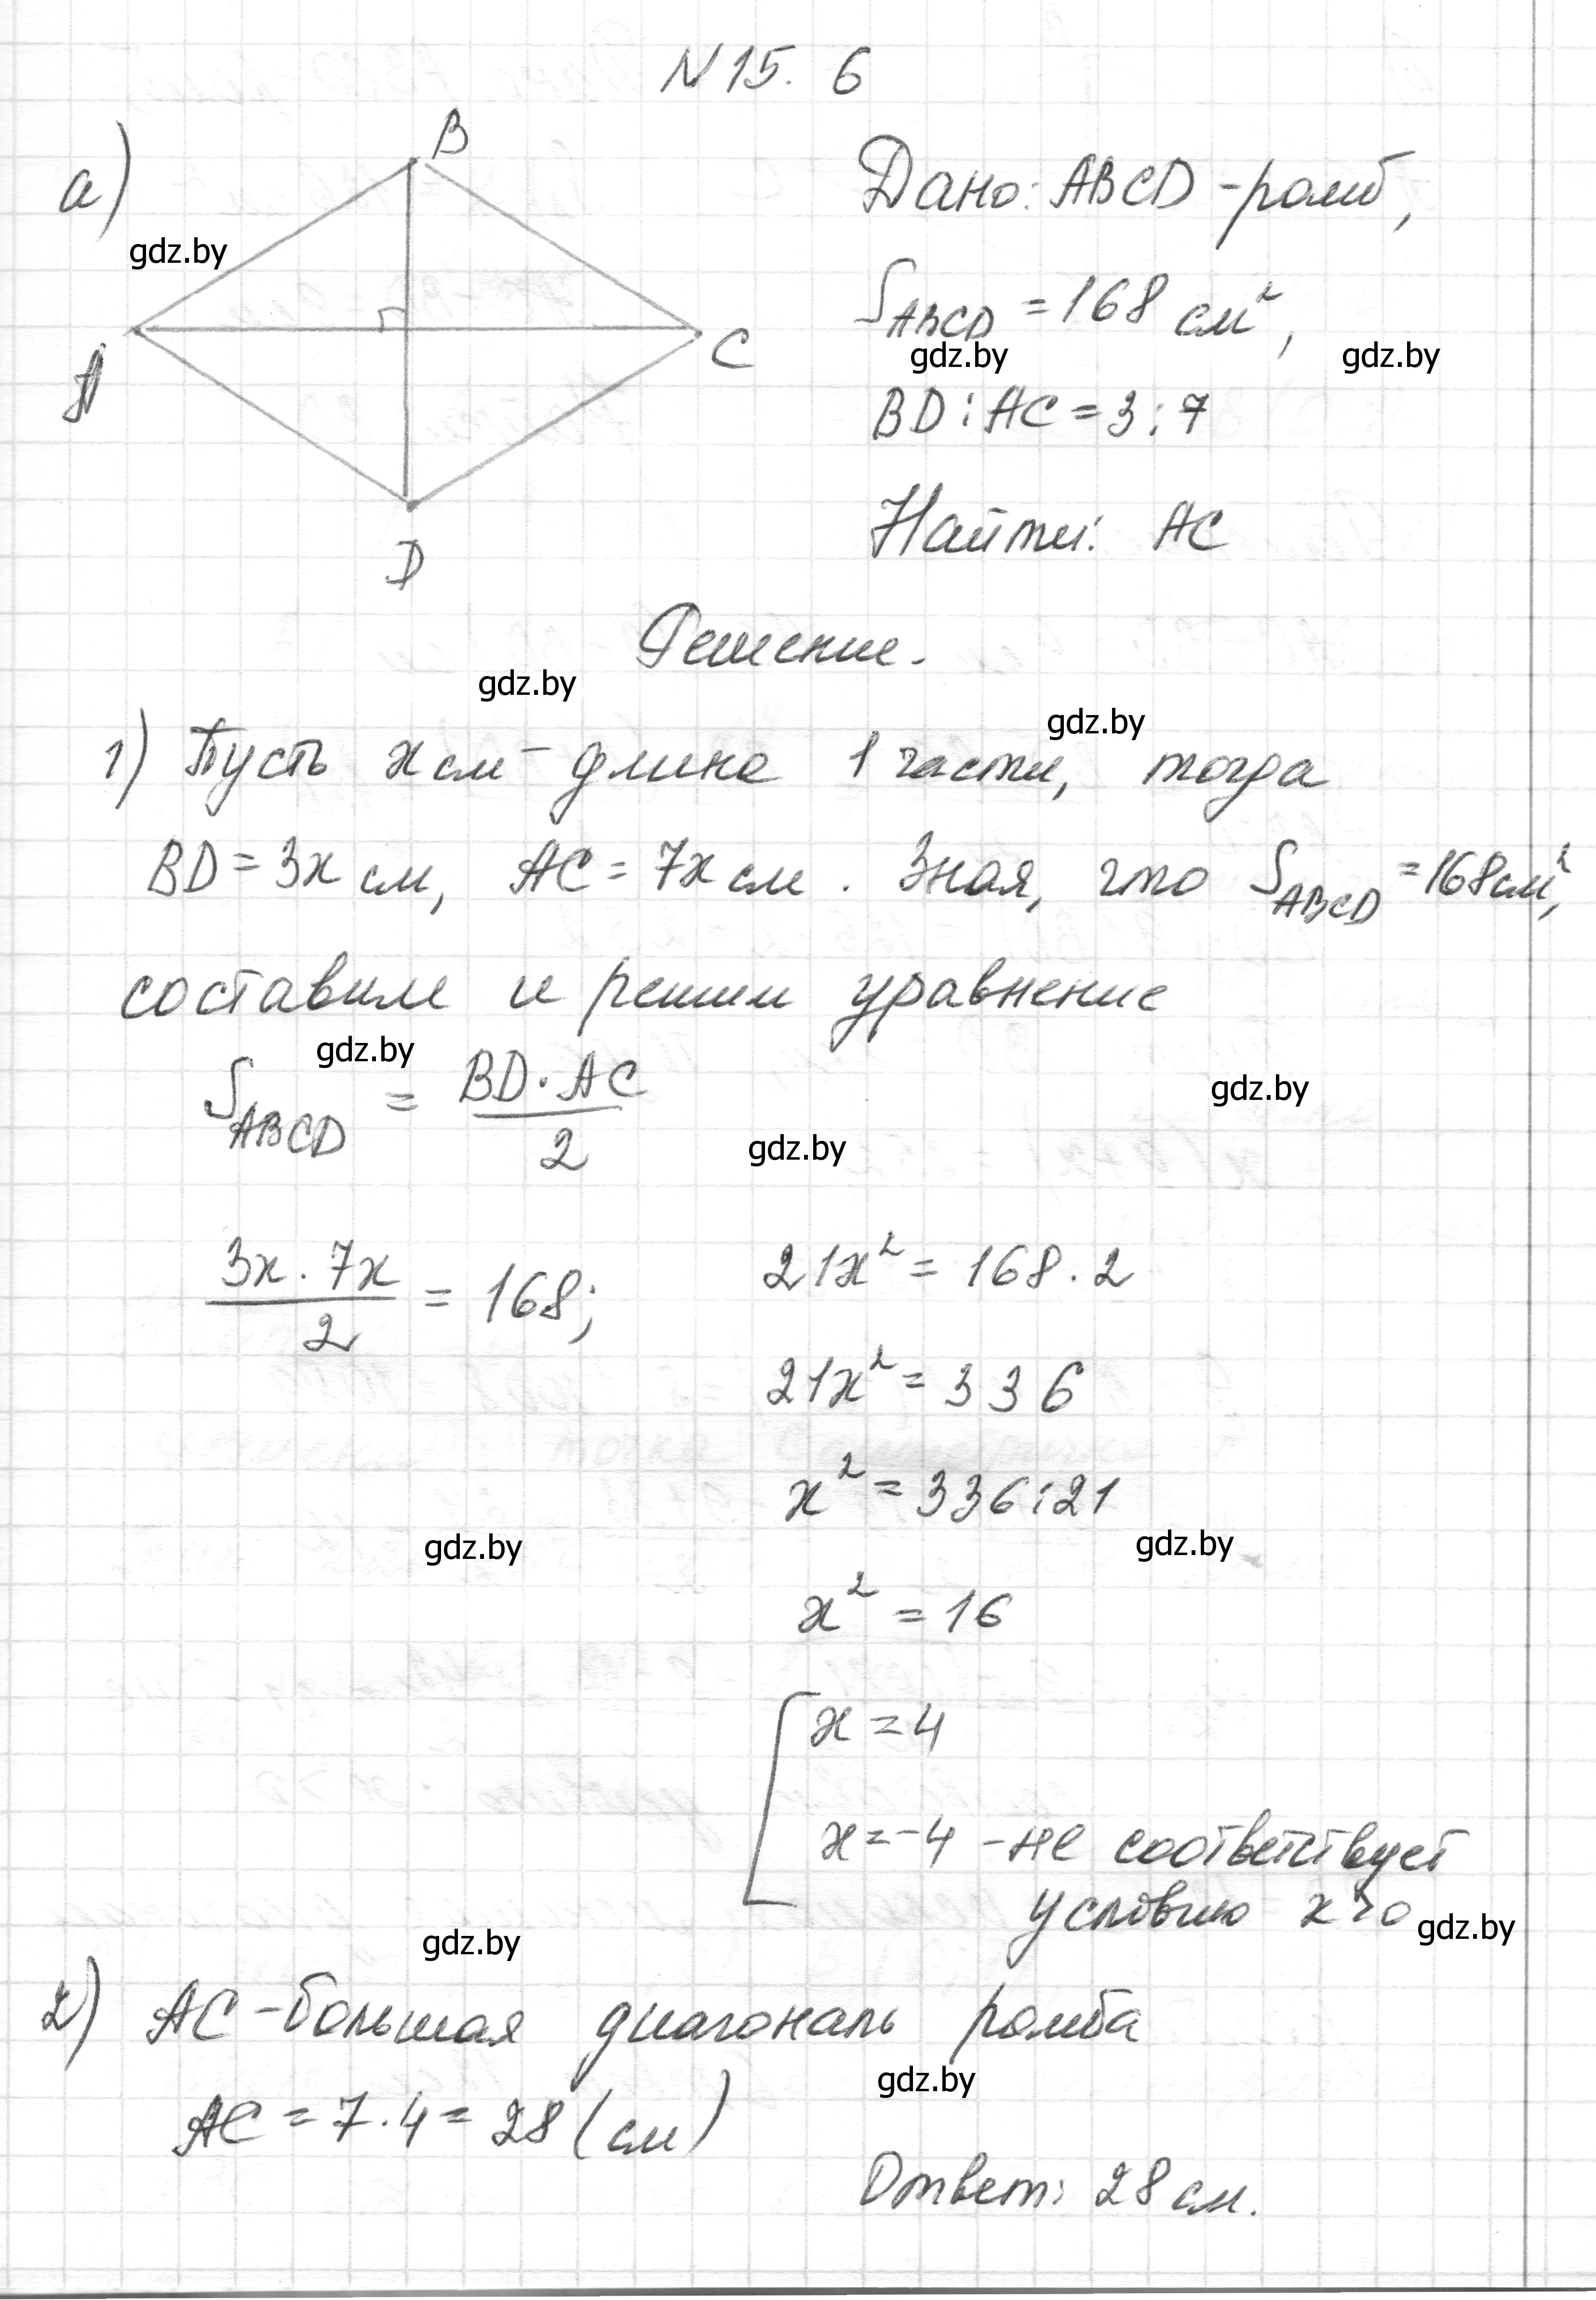 N 15. 6
а)
B
A
C
D
gdz.by
Дано: ABCD - ромб,
S_ABCD = 168 см²,
gdz.by gdz.by
BD : AC = 3 : 7
Найти: AC
Решение.
gdz.by
gdz.by
1) Пусть x см - длина 1 части, тогда
BD = 3x см, AC = 7x см. Зная, что S_ABCD = 168 см²,
составим и решим уравнение
gdz.by
S_ABCD = BD · AC / 2
gdz.by
gdz.by
3x · 7x / 2 = 168;
21x² = 168 · 2
21x² = 336
x² = 336 : 21
gdz.by gdz.by
x² = 16
[ x = 4
x = -4 - не соответствует
условию x > 0
gdz.by
gdz.by
2) AC - большая диагональ ромба
gdz.by
AC = 7 · 4 = 28 (см)
Ответ: 28 см.